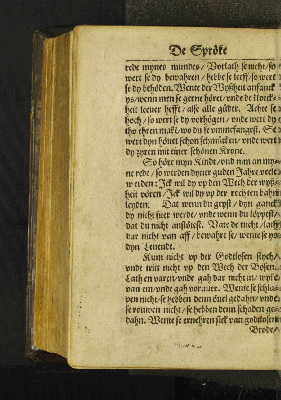 De Spröke
rede mynes mundes / Vorlath se nicht / so
wert se dy bewahren / hebbe se leeff / so wert
se dy behöden. Wente der Wyßheit anfanck
ys / wenn men se gerne höret / vnde de Kloeck-
heit leever hefft / alse alle güder. Achte se
hoch / so wert se dy vorhögen / vnde wert dy
tho ehren maken / wo du se vmmefangest. Se
wert dyn höuet schon schmücken / vnde wert
dy zyren mit einer schönen Krone.
So höre myn Kindt / vnd nim an my-
ne rede / so werden dyner guden Jahre veele
werden: Ick wil dy vp den Wech der wyß-
heit vören / Ick wil dy vp der rechten bahn
leyden. Dat wenn du geyst / dyn ganck
dy nicht suer werde / vnde wenn du löypest /
dat du nicht anstötest. Vate de tucht / lath
dar nicht van aff / bewahre se / wente se ys
dyn Leuendt.
Kum nicht vp der Godtlosen stych /
vnde tritt nicht vp den Wech der Bösen.
Lath en varen / vnde gah dar nicht in / wyke
van em / vnde gah vorauer. Wente se schla-
pen nicht / se hebben denn öuel gedahn / vnde
se rouwen nicht / se hebben denn schaden ge-
dahn. Wente se ernehren sick van godtlosem
Brode /